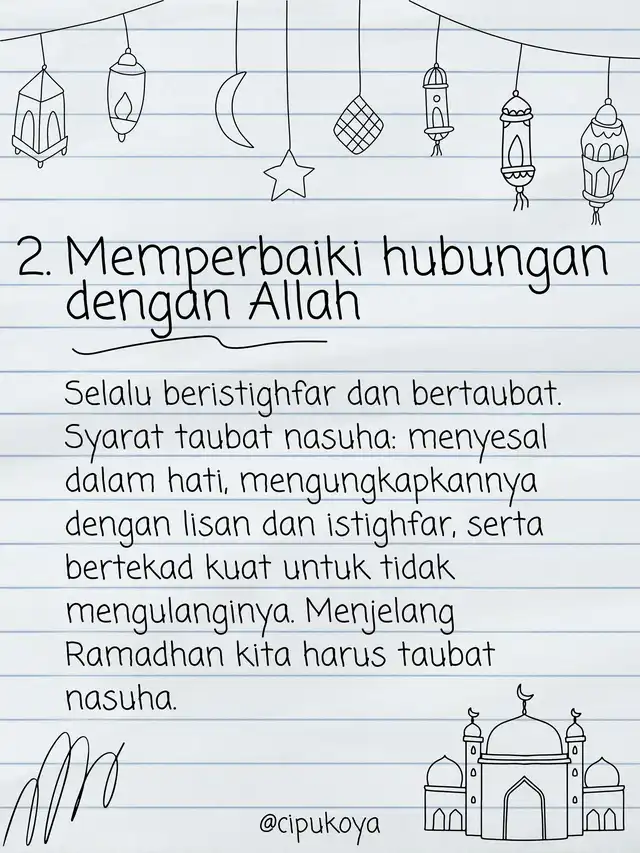 2. Memperbaiki hubungan
dengan Allah
Selalu beristighfar dan bertaubat.
Syarat taubat nasuha: menyesal
dalam hati, mengungkapkannya
dengan lisan dan istighfar, serta
bertekad kuat untuk tidak
mengulanginya. Menjelang
Ramadhan kita harus taubat
nasuha.
@cipukoya